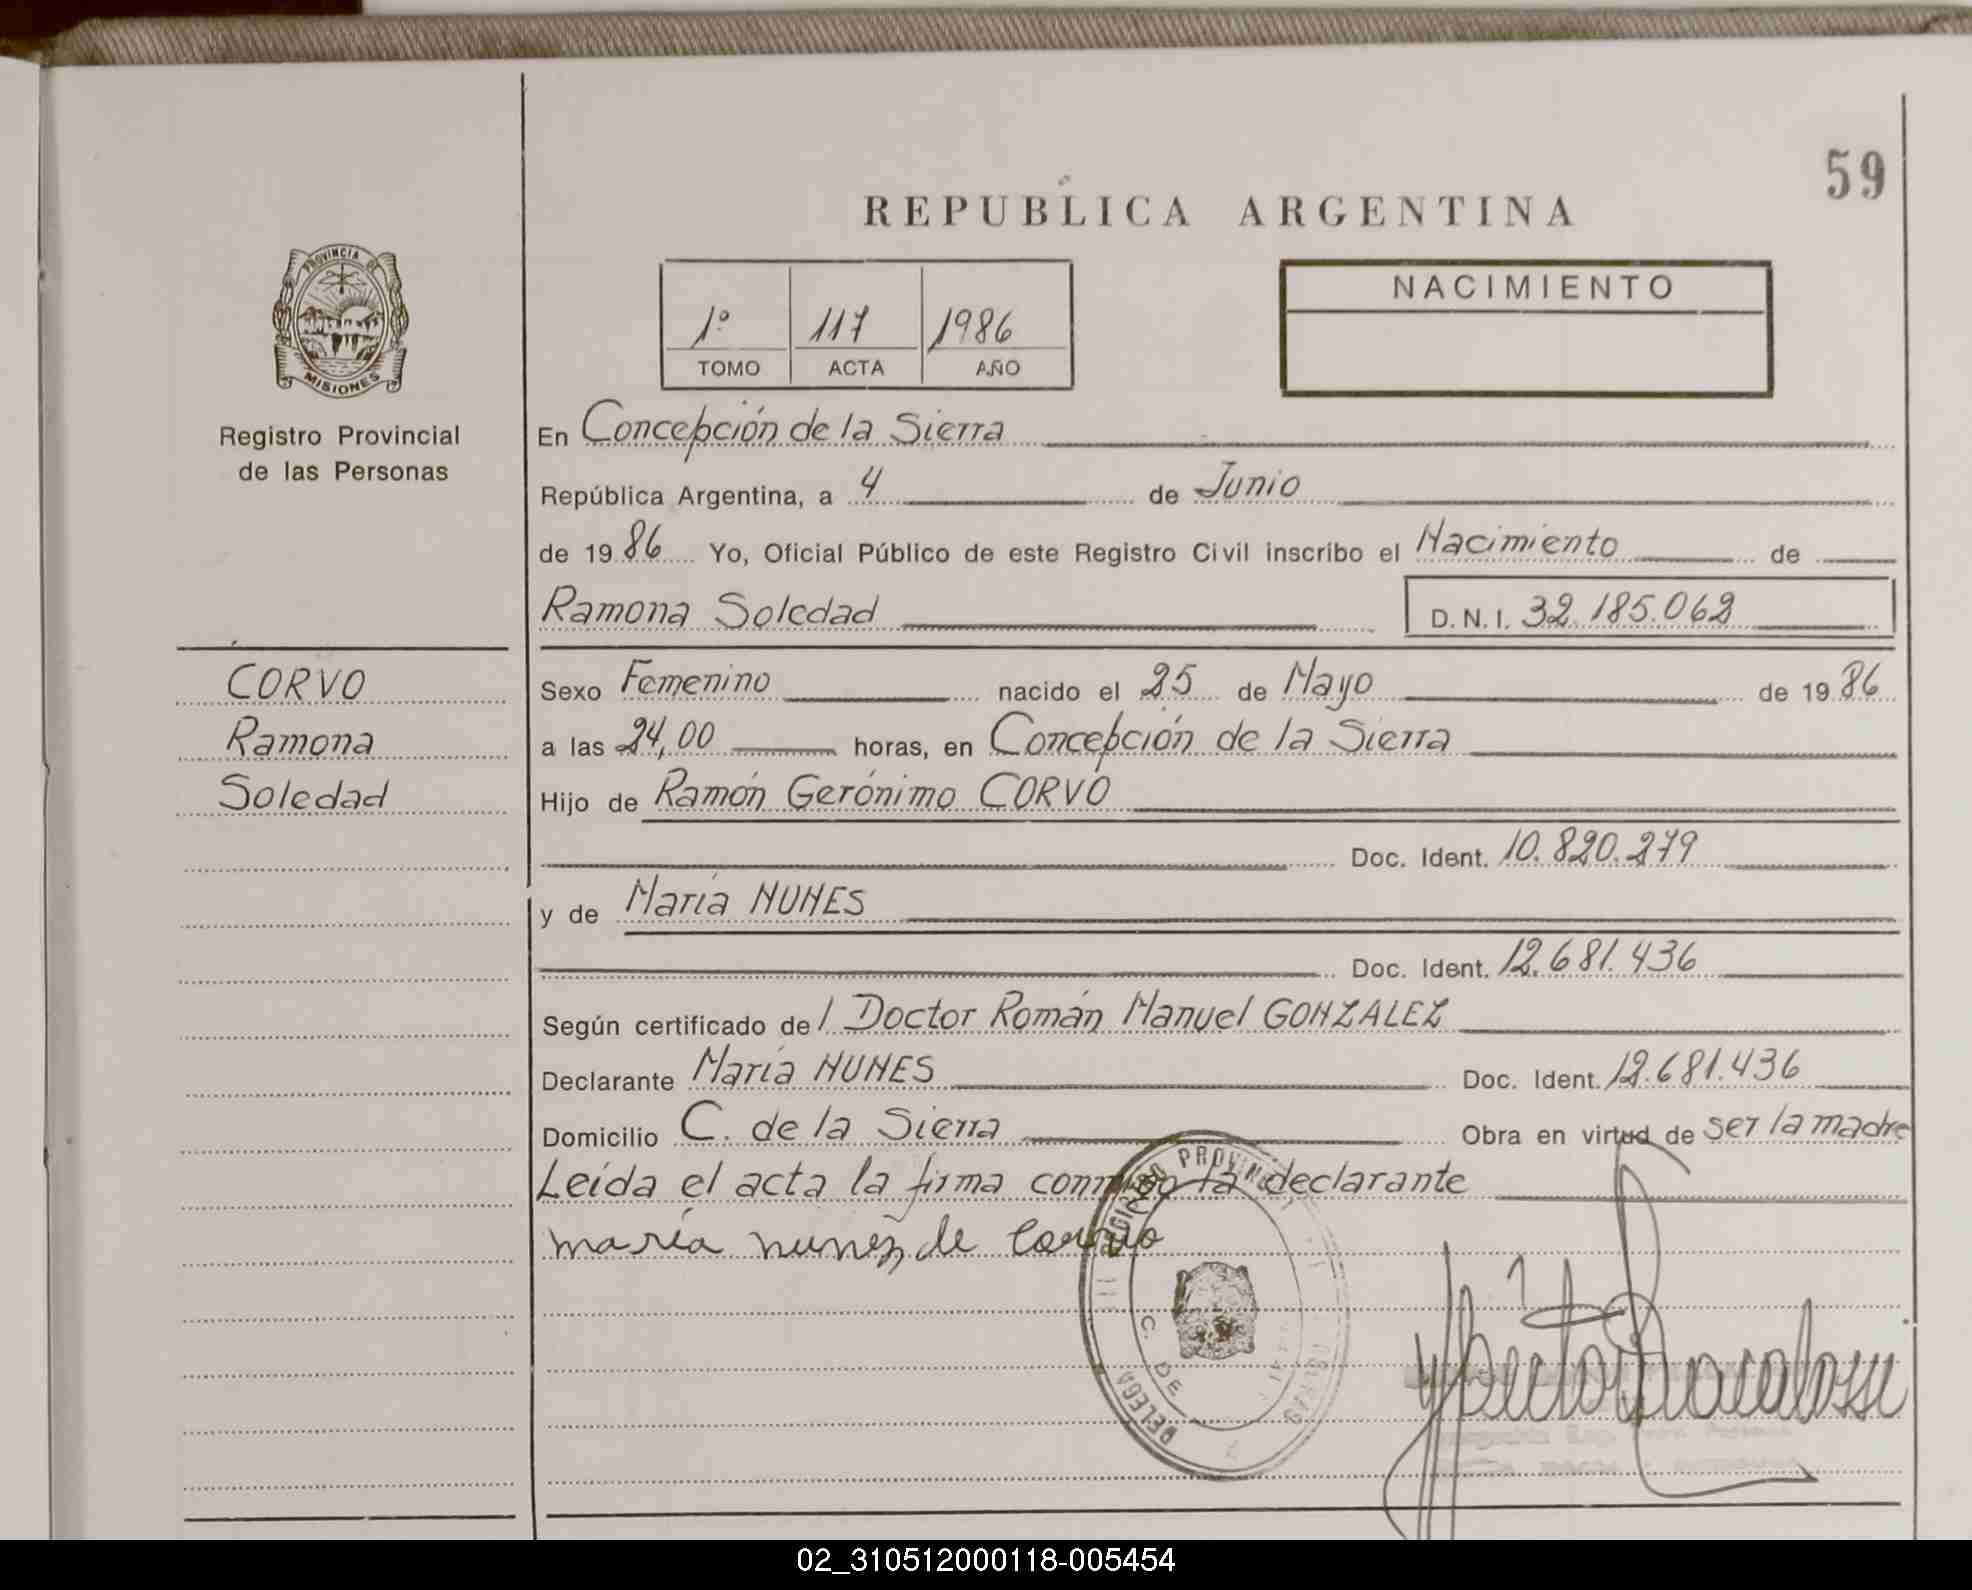 59
REPUBLICA ARGENTINA
PROVINCIA DE
MISIONES
Registro Provincial
de las Personas
1º 117 1986
TOMO ACTA AÑO
NACIMIENTO
En Concepción de la Sierra
República Argentina, a 4 de Junio
de 1986 Yo, Oficial Público de este Registro Civil inscribo el Nacimiento de
Ramona Soledad D.N.I. 32.185.062
CORVO
Ramona
Soledad
Sexo Femenino nacido el 25 de Mayo de 1986
a las 24,00 horas, en Concepción de la Sierra
Hijo de Ramón Gerónimo CORVO
Doc. Ident. 10.820.279
y de María NUNES
Doc. Ident. 12.681.436
Según certificado de l Doctor Román Manuel GONZALEZ
Declarante María NUNES Doc. Ident. 12.681.436
Domicilio C. de la Sierra Obra en virtud de ser la madre
Leída el acta la firma conmigo la declarante
maría nunez de Corvo
PROVINC
DELEGA
C. DE
02_310512000118-005454